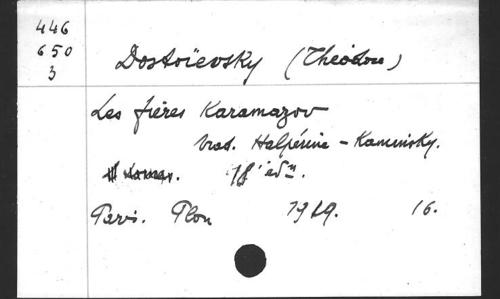 446
650
3
Dostoïevsky (Théodore)
Les frères Karamazov
trad. Halpérine - Kaminsky.
18 édn.
Paris. Plon 1929. 16.